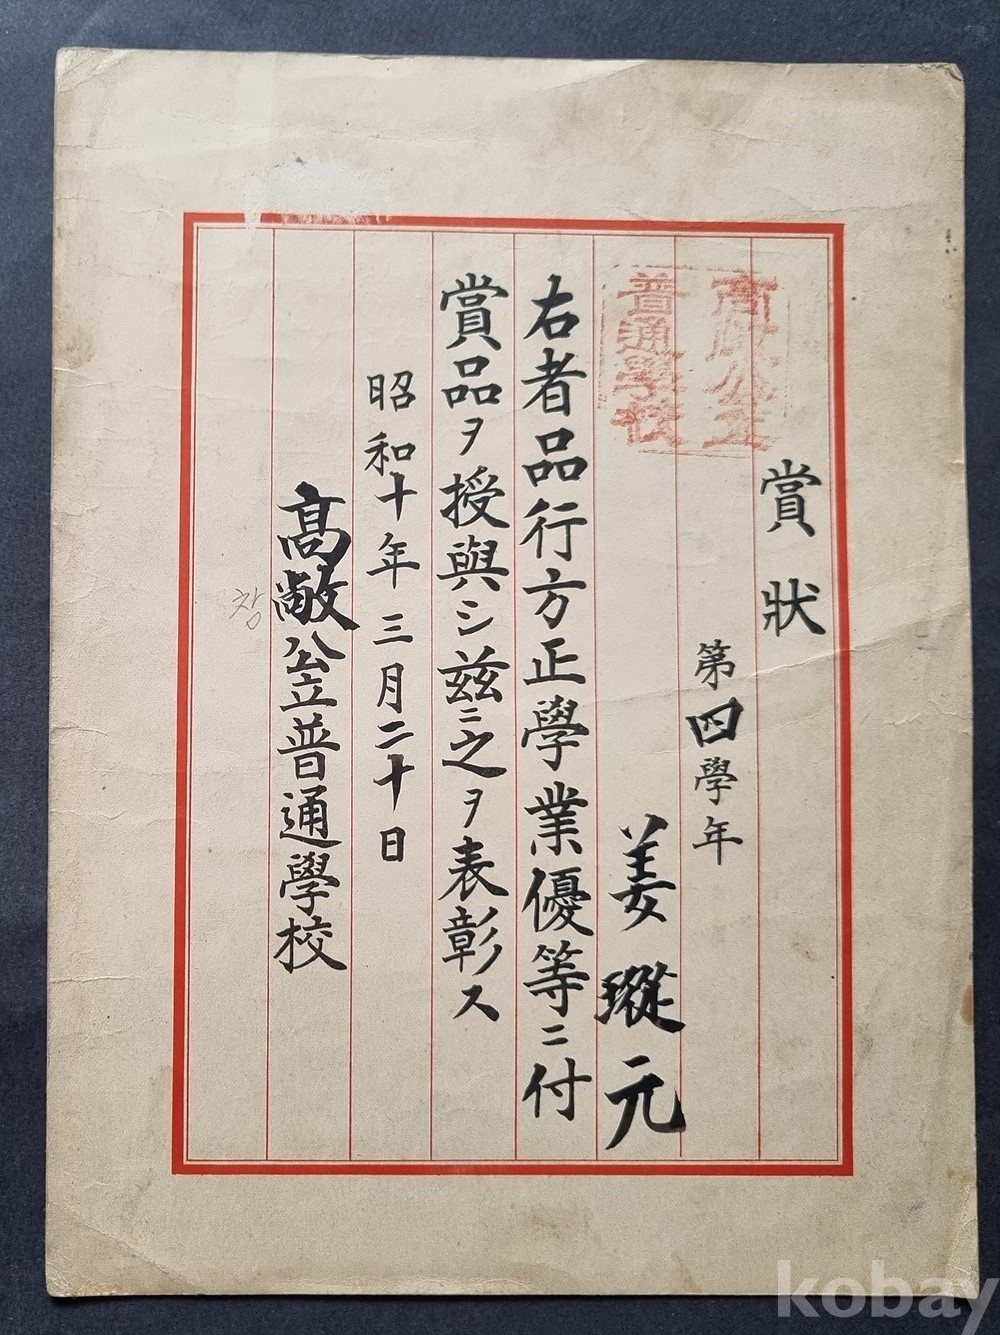 賞狀
第四學年
姜瑽元
右者品行方正學業優等ニ付
賞品ヲ授與シ玆ニ之ヲ表彰ス
昭和十年三月二十日
高敞公立普通學校
창
高敞公立
普通學校
kobay